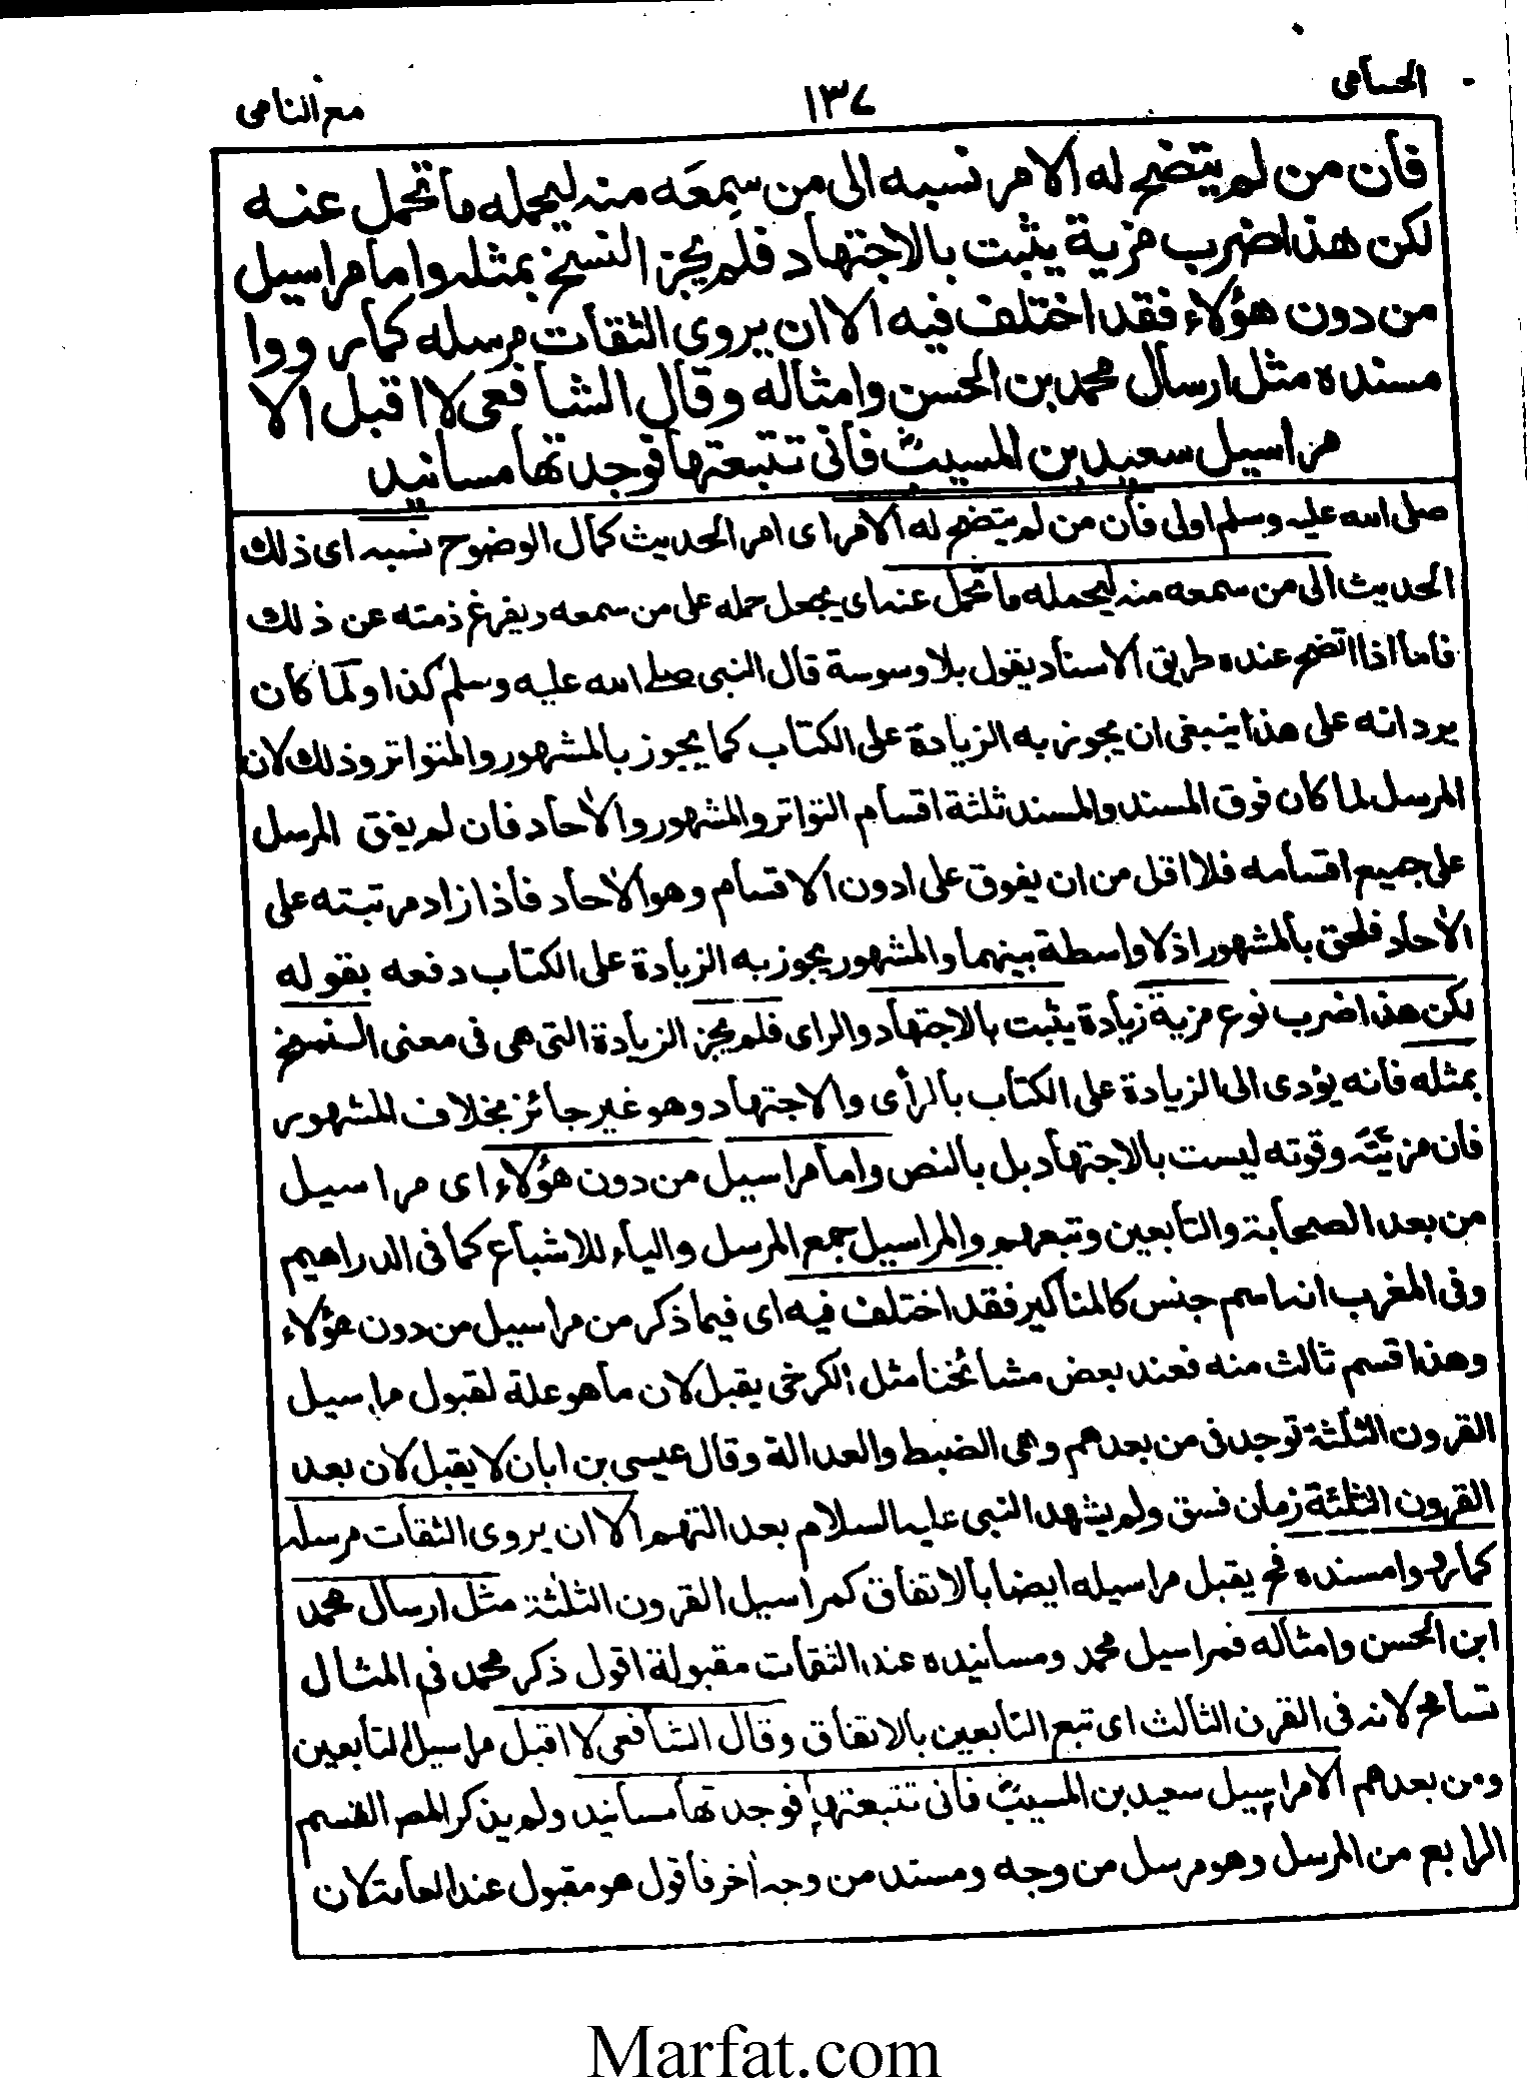 الحسامى
١٣٧
مع النامى
فان من لم يتضح له الامر نسبه الى من سمعَه منه ليحمله ما تحمل عنه
لكن هذا ضرب مزية يثبت بالاجتهاد فلم يجز النسخ بمثله واما مراسيل
من دون هؤلاء فقد اختلف فيه الا ان يروى الثقات مرسله كما رووا
مسنده مثل ارسال محمد بن الحسن وامثاله وقال الشافعى لا اقبل الا
مراسيل سعيد بن المسيب فانى تتبعتها فوجدتها مسانيد
صلى الله عليه وسلم اولى فان من لم يتضح له الامر اى امر الحديث كمال الوضوح نسبه اى ذلك
الحديث الى من سمعه منه ليحمله ما تحمل عنه اى يجعل حمله على من سمعه ويفرغ ذمته عن ذلك
فاما اذا اتضح عنده طريق الاسناد يقول بلا وسوسة قال النبى صلى الله عليه وسلم كذا ولما كان
يرد انه على هذا ينبغى ان يجوز به الزيادة على الكتاب كما يجوز بالمشهور والمتواتر وذلك لان
المرسل لما كان فوق المسند والمسند ثلثة اقسام التواتر والمشهور والاٰحاد فان لم يفق المرسل
على جميع اقسامه فلا اقل من ان يفوق على ادون الاقسام وهو الاٰحاد فاذا زاد مرتبته على
الاٰحاد فلحق بالمشهور اذ لا واسطة بينهما والمشهور يجوز به الزيادة على الكتاب دفعه بقوله
لكن هذا ضرب نوع مزية زيادة يثبت بالاجتهاد والراى فلم يجز الزيادة التى هى فى معنى النسخ
بمثله فانه يؤدى الى الزيادة على الكتاب بالرأى والاجتهاد وهو غير جائز بخلاف المشهور
فان مزيّته وقوته ليست بالاجتهاد بل بالنص واما مراسيل من دون هؤلاء اى مراسيل
من بعد الصحابة والتابعين وتبعهم والمراسيل جمع المرسل والياء للاشباع كما فى الدراهيم
وفى المغرب انه اسم جنس كالمناكير فقد اختلف فيه اى فيما ذكر من مراسيل من دون هؤلاء
وهذا قسم ثالث منه فعند بعض مشائخنا مثل الكرخى يقبل لان ما هو علة لقبول مراسيل
القرون الثلثة توجد فى من بعدهم وهى الضبط والعدالة وقال عيسى بن ابان لا يقبل لان بعد
القرون الثلثة زمان فسق ولم يشهد النبى عليه السلام بعد التهم الا ان يروى الثقات مرسله
كما رووا مسنده فح يقبل مراسيله ايضا بالاتفاق كمراسيل القرون الثلٰثة مثل ارسال محمد
ابن الحسن وامثاله فمراسيل محمد ومسانيده عند الثقات مقبولة اقول ذكر محمد فى المثال
تسامح لانه فى القرن الثالث اى تبع التابعين بالاتفاق وقال الشافعى لا اقبل مراسيل التابعين
ومن بعدهم الا مراسيل سعيد بن المسيب فانى تتبعتها فوجدتها مسانيد ولم يذكر المصـ القسم
الرابع من المرسل وهو مرسل من وجه ومسند من وجه اٰخر فاقول هو مقبول عند العامة لان
Marfat.com